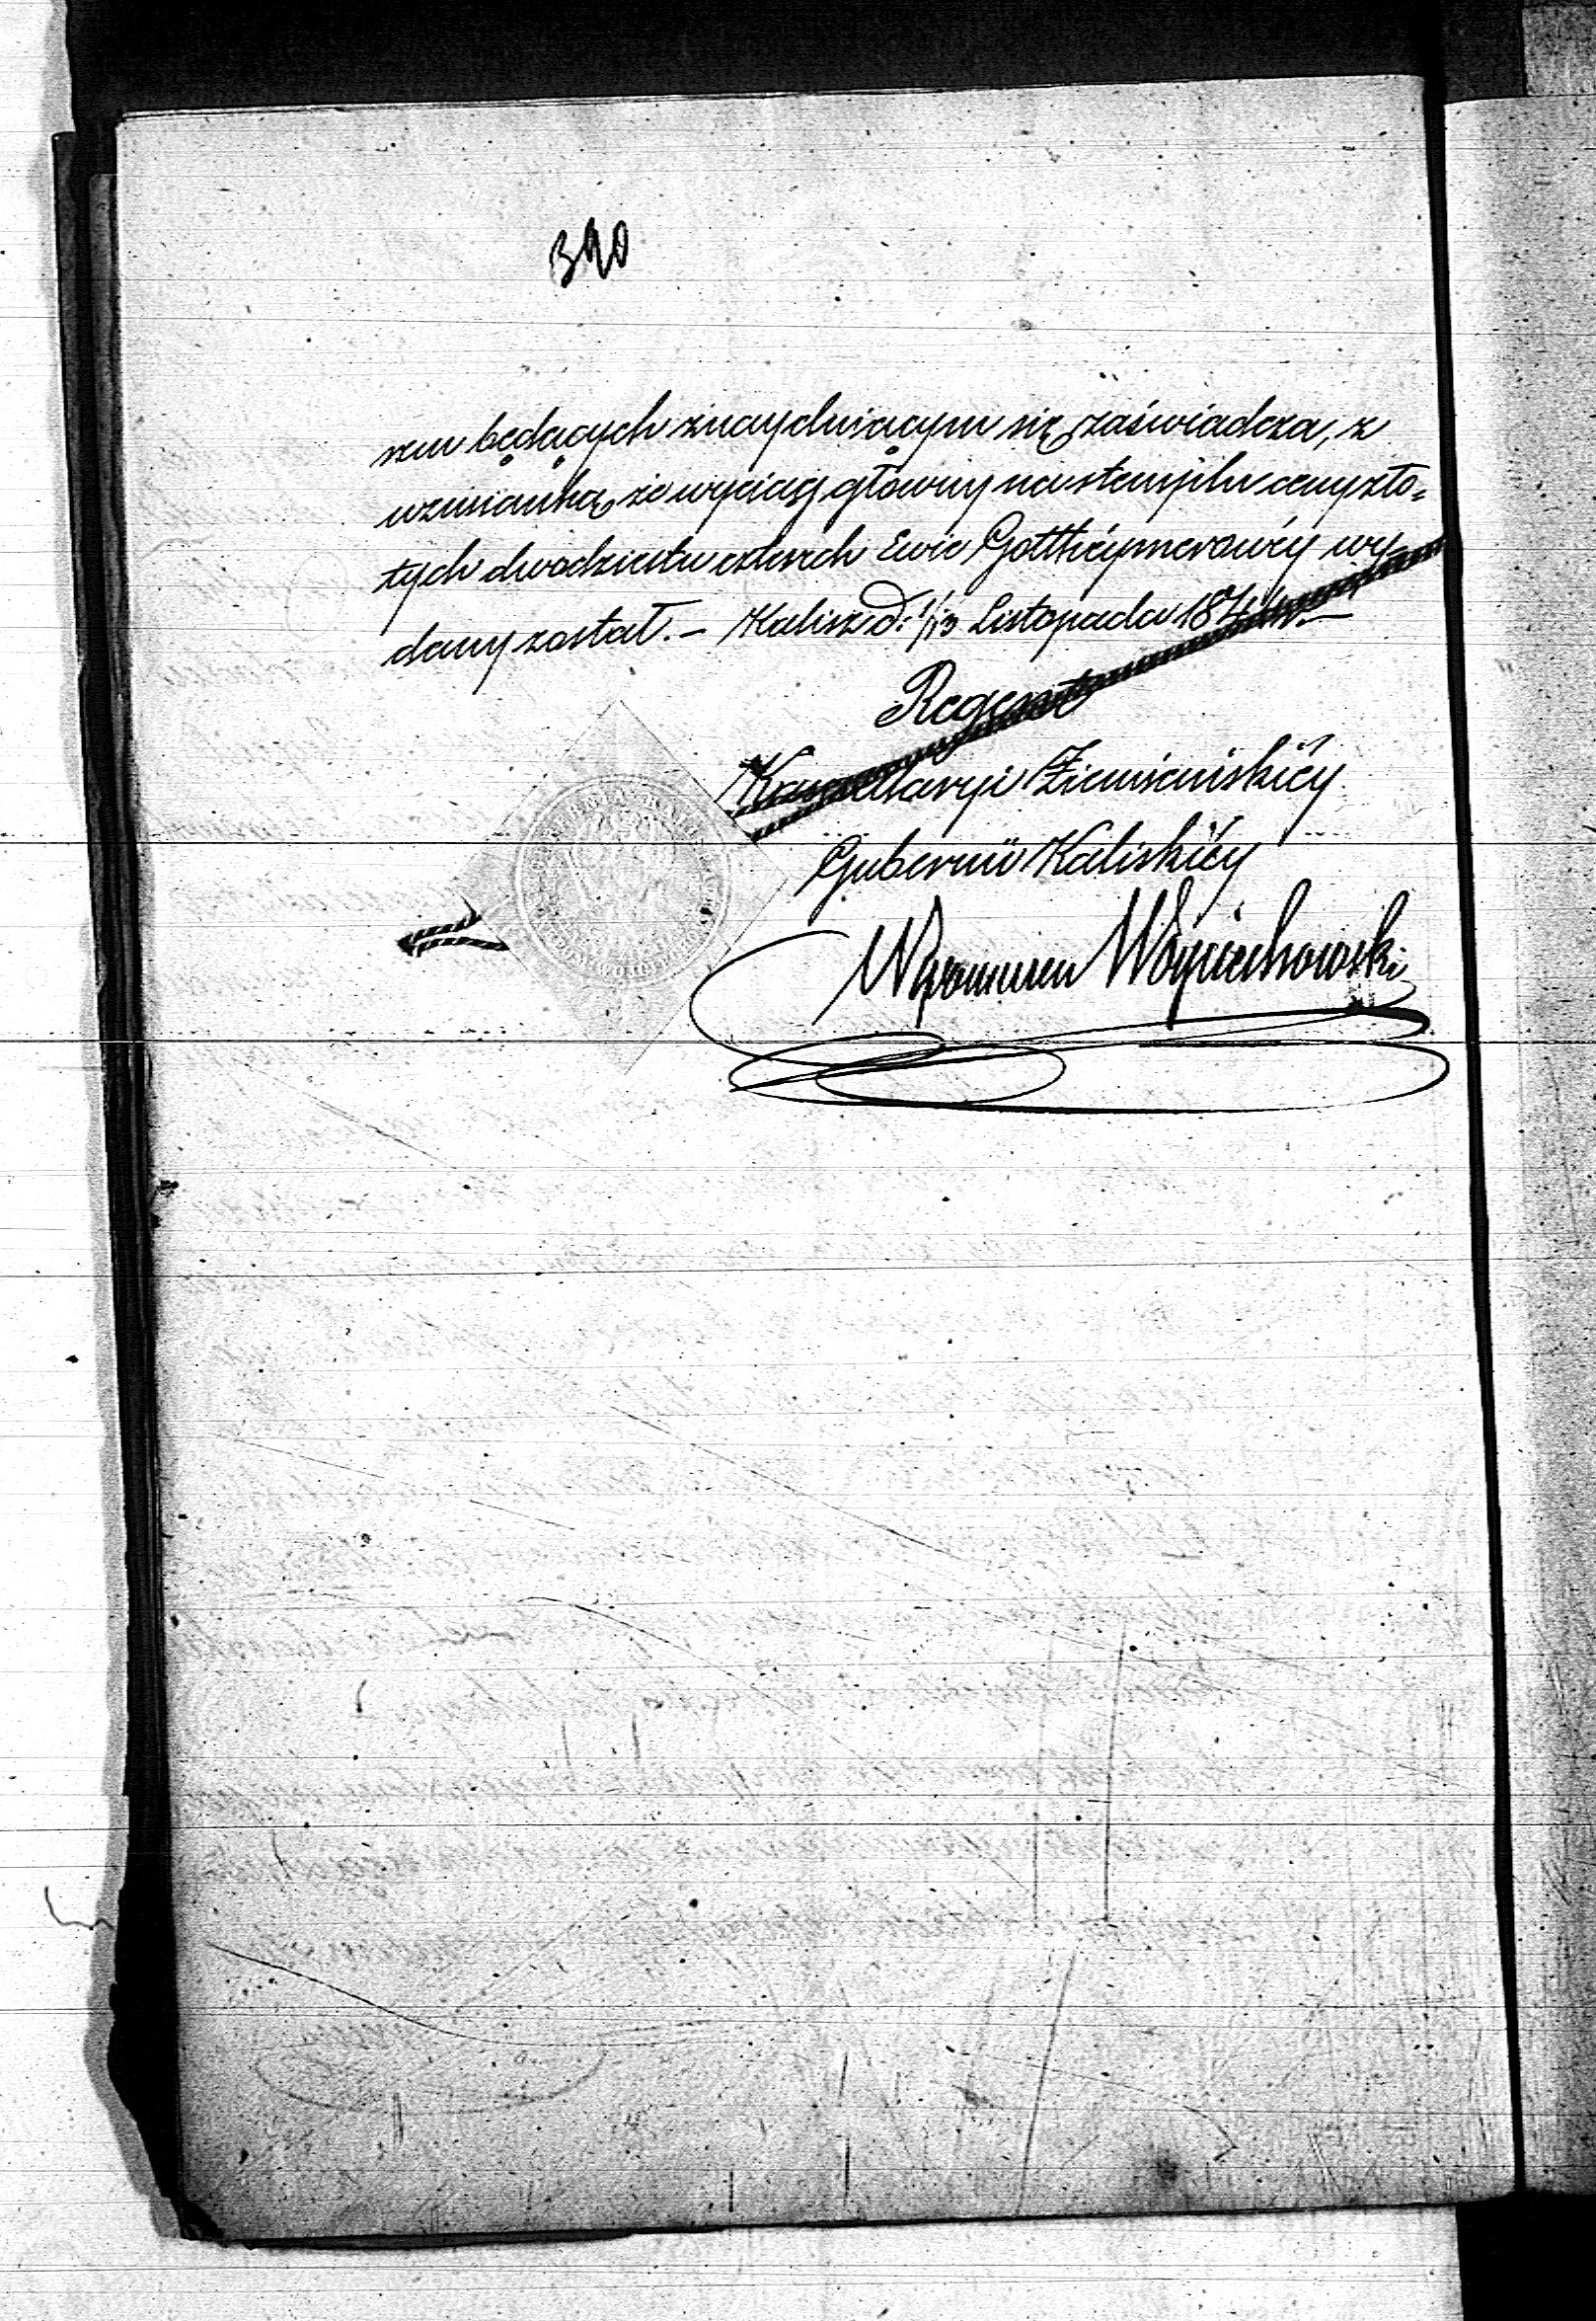 390
szu będących znayduiącym się zaświadcza, z
wzmianką że wyciąg główny na stemplu ceny zło=
tych dwadzieścia czterech Ewie Gottheymerowéy wy
dany został. – Kalisz d: 1/13 Listopada 1844 r. –
Regent
Kancellaryi Ziemiańskiéy
Gubernii Kaliskiéy
Nepomucen Woyciechowski